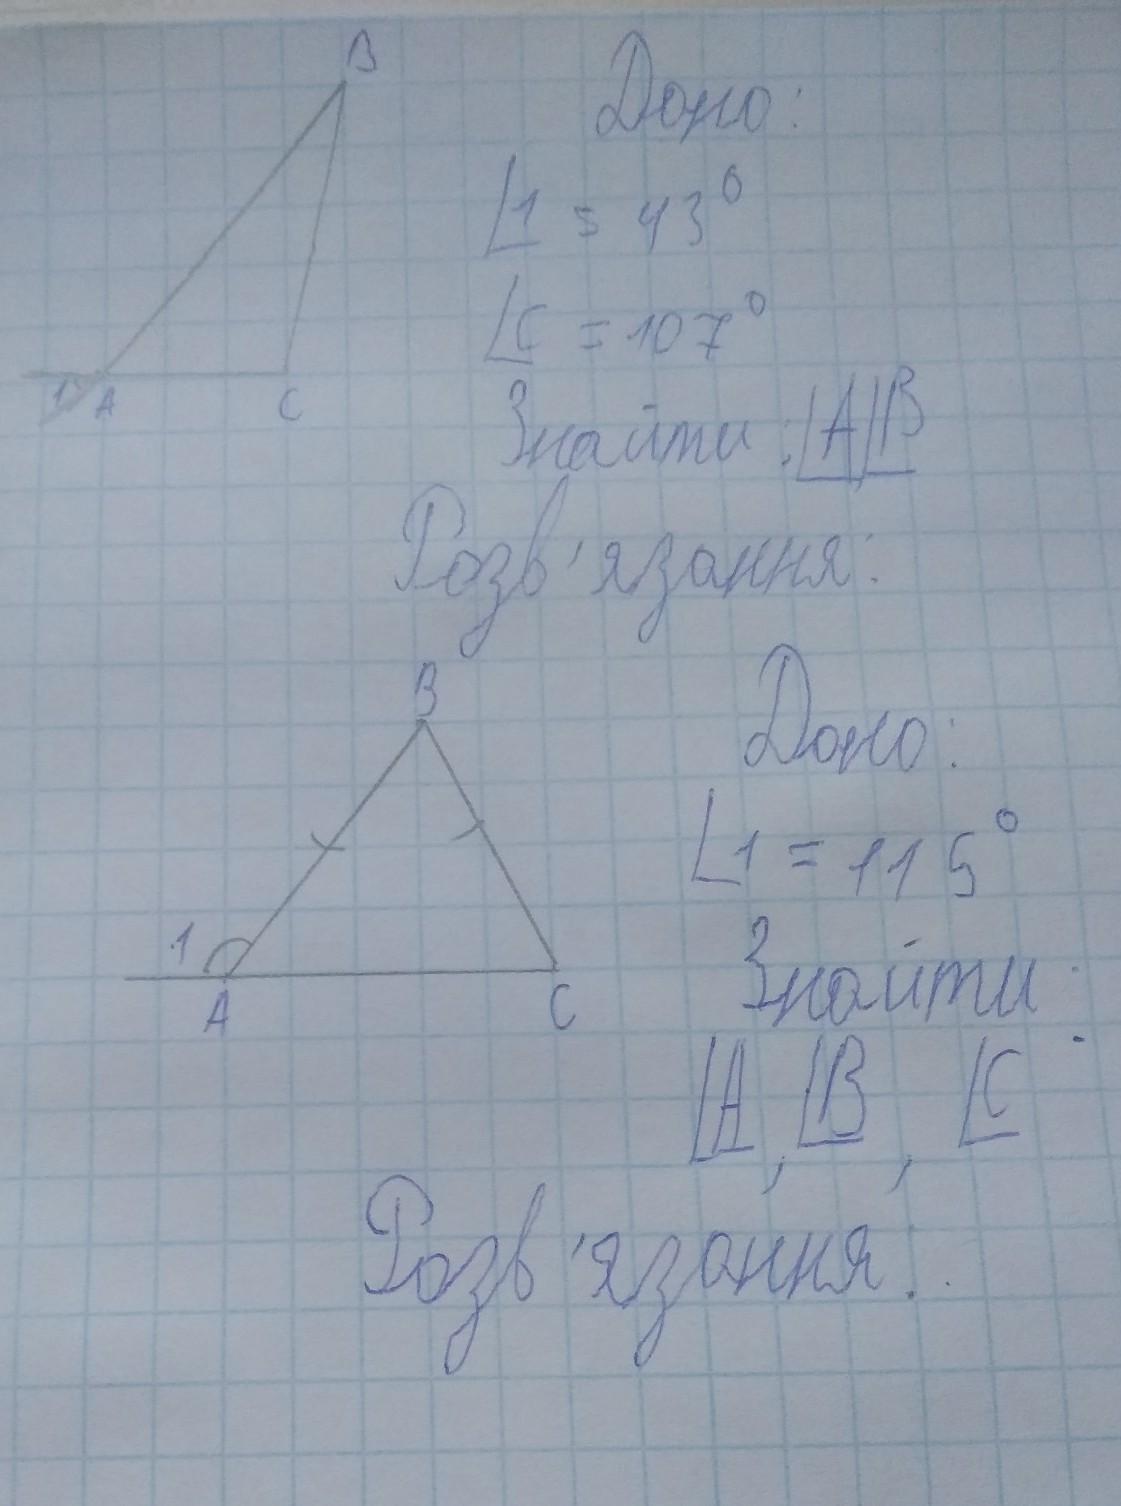 B
Дано:
∠1 = 43°
∠C = 107°
1 A C
Знайти: ∠A, ∠B
Розв'язання:
B
Дано:
∠1 = 115°
1
A C
Знайти:
∠A, ∠B, ∠C
Розв'язання: